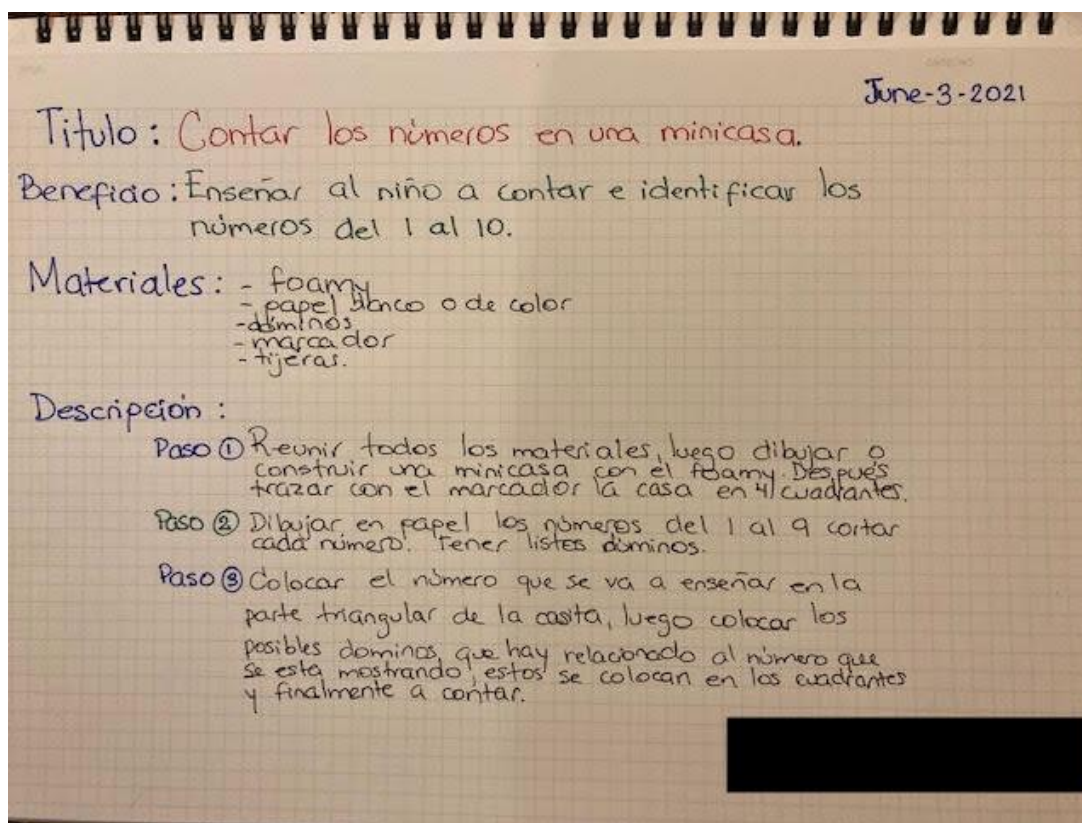 June-3-2021
Titulo: Contar los números en una minicasa.
Beneficio: Enseñar al niño a contar e identificar los
números del 1 al 10.
Materiales: - foamy
- papel blanco o de color
- dóminos
- marcador
- tijeras.
Descripción:
Paso ① Reunir todos los materiales, luego dibujar o
construir una minicasa con el foamy. Después
trazar con el marcador la casa en 4 cuadrantes.
Paso ② Dibujar en papel los números del 1 al 9 cortar
cada número. Tener listos dóminos.
Paso ③ Colocar el número que se va a enseñar en la
parte triangular de la casita, luego colocar los
posibles dominos que hay relacionado al número que
se está mostrando, estos se colocan en los cuadrantes
y finalmente a contar.